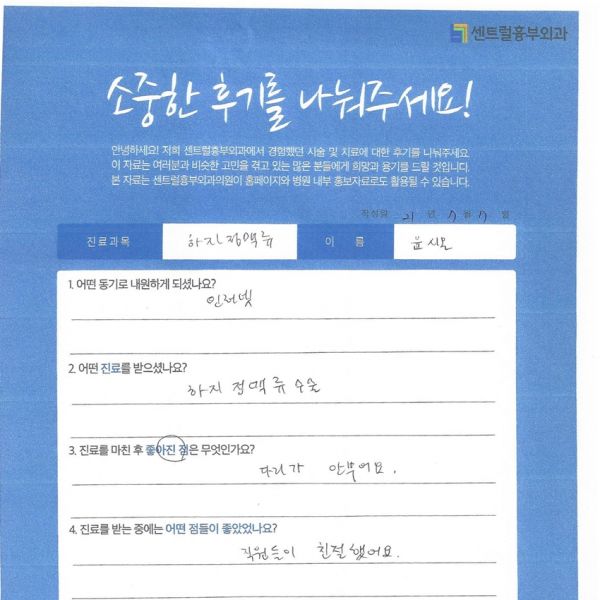 센트럴흉부외과
소중한 후기를 나눠주세요!
안녕하세요! 저희 센트럴흉부외과에서 경험했던 시술 및 치료에 대한 후기를 나눠주세요.
이 자료는 여러분과 비슷한 고민을 겪고 있는 많은 분들에게 희망과 용기를 드릴 것입니다.
본 자료는 센트럴흉부외과의원이 홈페이지와 병원 내부 홍보자료로도 활용될 수 있습니다.
작성일 21 년 월 일
진료과목 하지정맥류 이 름 윤
1. 어떤 동기로 내원하게 되셨나요?
인터넷
2. 어떤 진료를 받으셨나요?
하지 정맥류 수술
3. 진료를 마친 후 좋아진 점은 무엇인가요?
다리가 안부어요.
4. 진료를 받는 중에는 어떤 점들이 좋았었나요?
직원들이 친절했어요.